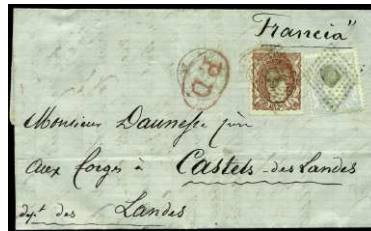 Francia"
P.D.
Monsieur Daunesse père
aux forges à Castets-des-Landes
dept des Landes